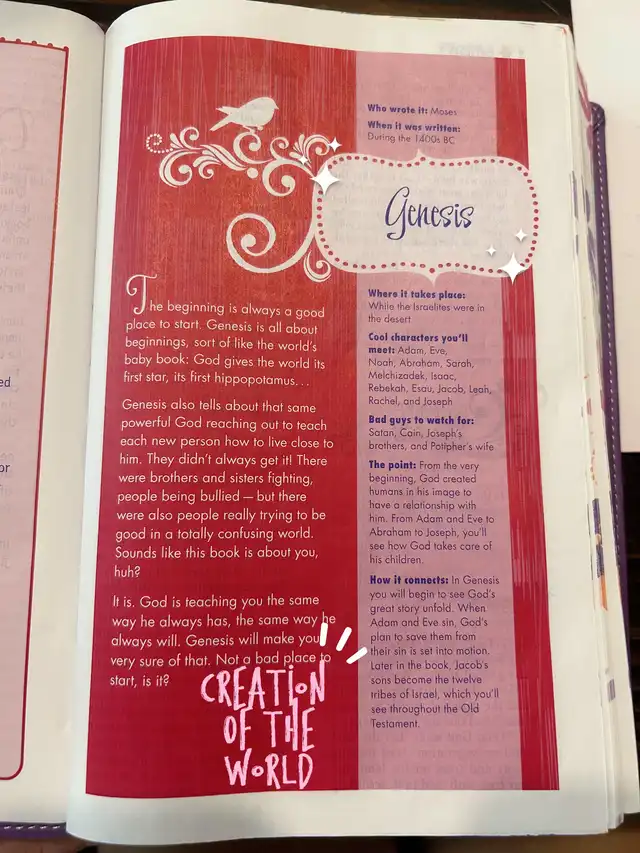 Genesis
The beginning is always a good
place to start. Genesis is all about
beginnings, sort of like the world's
baby book: God gives the world its
first star, its first hippopotamus…
Genesis also tells about that same
powerful God reaching out to teach
each new person how to live close to
him. They didn't always get it! There
were brothers and sisters fighting,
people being bullied — but there
were also people really trying to be
good in a totally confusing world.
Sounds like this book is about you,
huh?
It is. God is teaching you the same
way he always has, the same way he
always will. Genesis will make you
very sure of that. Not a bad place to
start, is it?
CREATION
OF THE
WORLD
Who wrote it: Moses
When it was written:
During the 1400s BC
Where it takes place:
While the Israelites were in
the desert
Cool characters you'll
meet: Adam, Eve,
Noah, Abraham, Sarah,
Melchizadek, Isaac,
Rebekah, Esau, Jacob, Leah,
Rachel, and Joseph
Bad guys to watch for:
Satan, Cain, Joseph's
brothers, and Potipher's wife
The point: From the very
beginning, God created
humans in his image to
have a relationship with
him. From Adam and Eve to
Abraham to Joseph, you'll
see how God takes care of
his children.
How it connects: In Genesis
you will begin to see God's
great story unfold. When
Adam and Eve sin, God's
plan to save them from
their sin is set into motion.
Later in the book, Jacob's
sons become the twelve
tribes of Israel, which you'll
see throughout the Old
Testament.